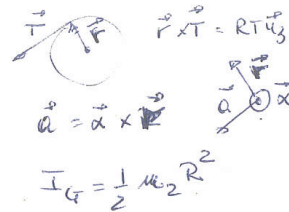 T⃗ r⃗ r⃗ × T⃗ = RT u⃗₃
a⃗ = α⃗ ×
r⃗ a⃗ α⃗
I_G = 1/2 m₂ R²